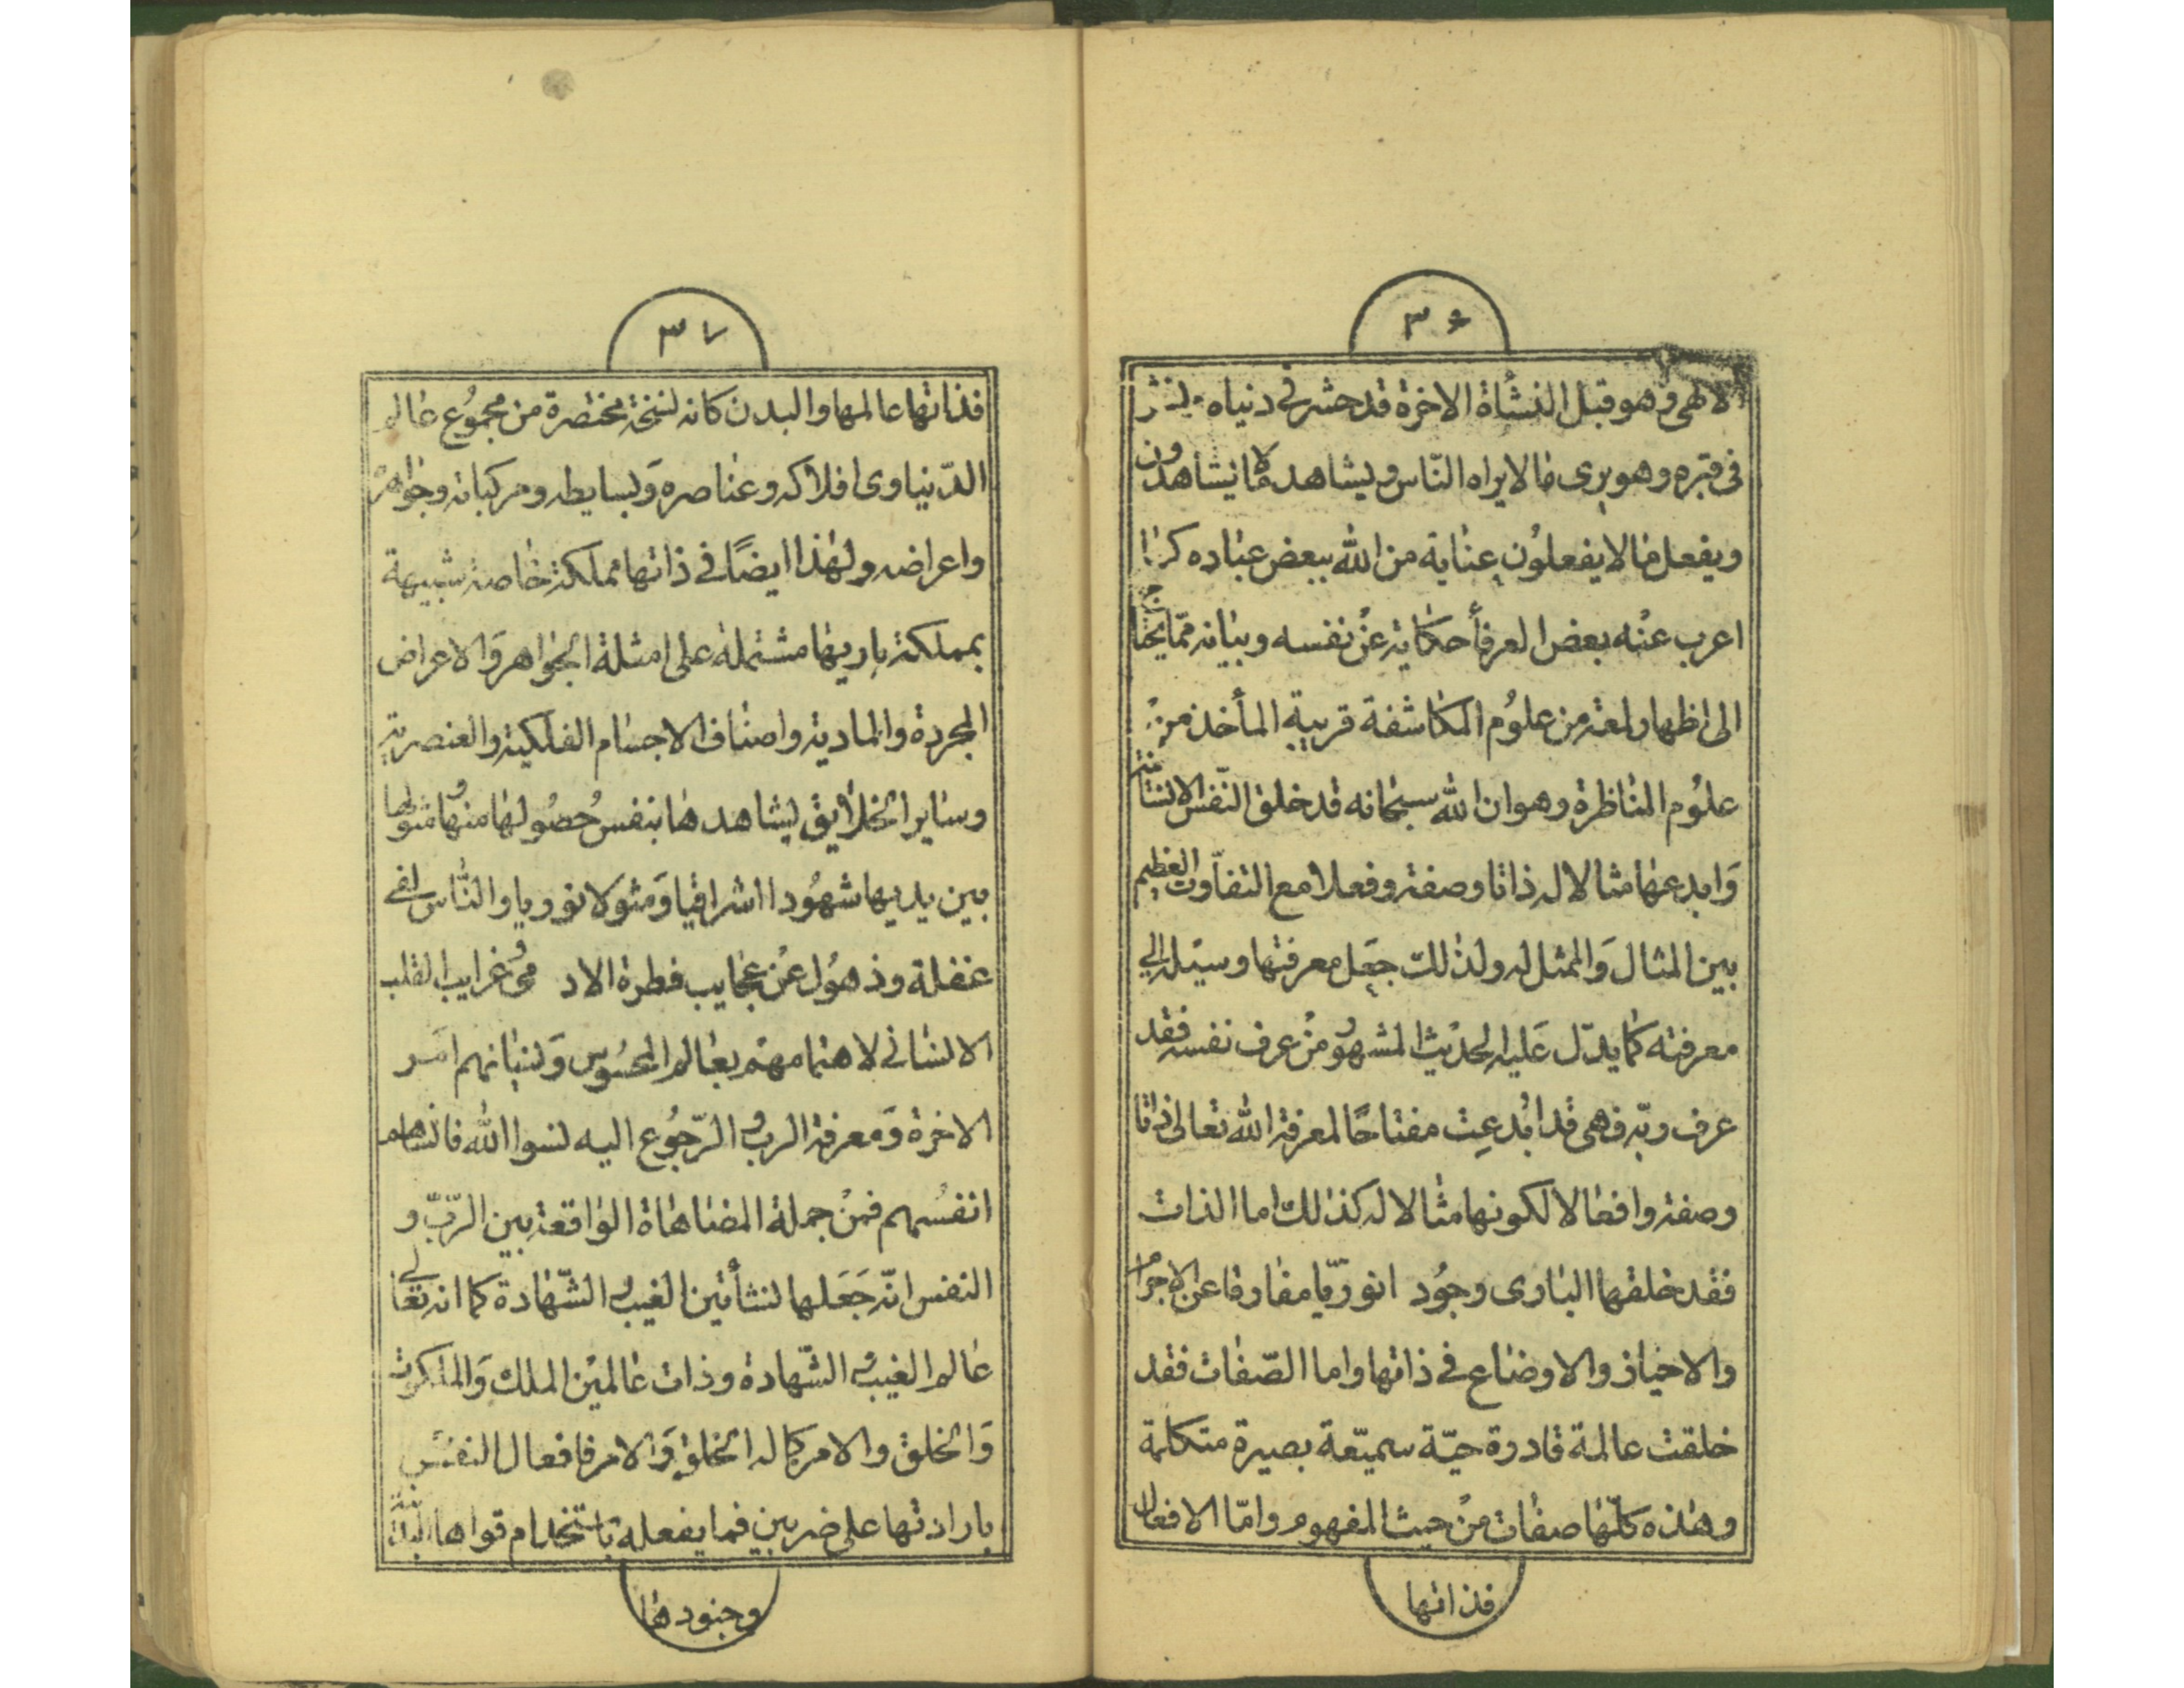 ٣۶
لالهی وهو قبل النشأة الاخرة قد حشر فی دنیاه
فی قبره وهو یری ما لا یراه النّاس ویشاهد ما لا یشاهدون
ویفعل ما لا یفعلون عنایة من الله ببعض عباده کما
اعرب عنه بعض العرفأ حکایة عن نفسه وبیانه ممّا یحتاج
الی اظهار لمعة من علوم المکاشفة قریبة المأخذ من
علوم المناظرة وهو ان الله سبحانه قد خلق النّفس الانسانیّة
وَابدعها مثالا له ذاتا وصفة وفعلا مع التفاوت العظیم
بین المثال وَالممثل له ولذلک جعَل معرفتها وسیله الی
معرفته کما یدّل عَلیه الحدیث المشهور من عرف نفسه فقد
عرف ربّه فهی قد ابُدعِت مفتاحًا لمعرفة الله تعالی ذاتا
وصفة وافعالا لکونها مثالا له کذلک اما الذات
فقد خلقها الباری وجوُد انوریّا مفارقا عن الاجرام
والاحیاز والاوضاع فی ذاتها واما الصّفات فقد
خلقت عالمة قادرة حیّة سمیّعة بصیرة متکلمة
وهذه کلّها صفات من حیث المفهوم وامّا الافعال
فذاتها
٣٧
فذاتها عالمها والبدن کانه نسخة مختصرة من مجموُع عالم
الدّنیاوی افلاکه وعناصره وَبسایطه ومرکباته وجواهره
واعراضه ولهذا ایضًا فی ذاتها مملکة خاصة شبیهة
بمملکة باریها مشتملة علی امثلة الجواهر وَالاعراض
المجردة والمادیة واصناف الاجسام الفلکیة والعنصریة
وسایر الخلایق یشاهدها بنفس حُصُولها منها ومثولها
بین یدیها شهُودا اشراقیا وَمثولا نوریا والنّاس لفی
غفلة وذهوُل عن عجایب فطرة الاد می وغرایب القلب
الانسانی لاهتمامهم بعالم المحسُوس وَنسیانهم امَر
الاخرة وَمعرفة الرب والرّجوُع الیه نسوا الله فانساهم
انفسُهم فمن جملة المضاهاة الواقعة بین الرّبّ و
النفس انّه جَعَلها لنشأتین الغیب والشّهادة کما انه تعالی
عالم الغیب والشّهادة وذات عالمین الملک وَالملکوت
وَالخلق والامر کما له الخلق وَالامر فافعال النفس
بارادتها علی ضربین فما یفعله باستخدام قواها البدنیّة
وجنودها